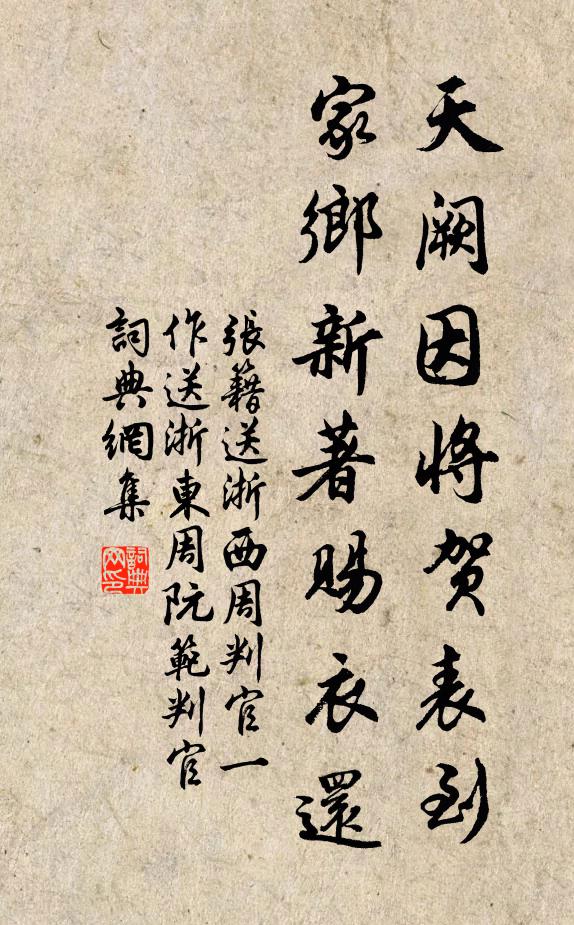 天阙因将贺表到
家鄉新著賜衣還
張籍送浙西周判官一
作送浙東周阮範判官
詞典網集
詞典网印